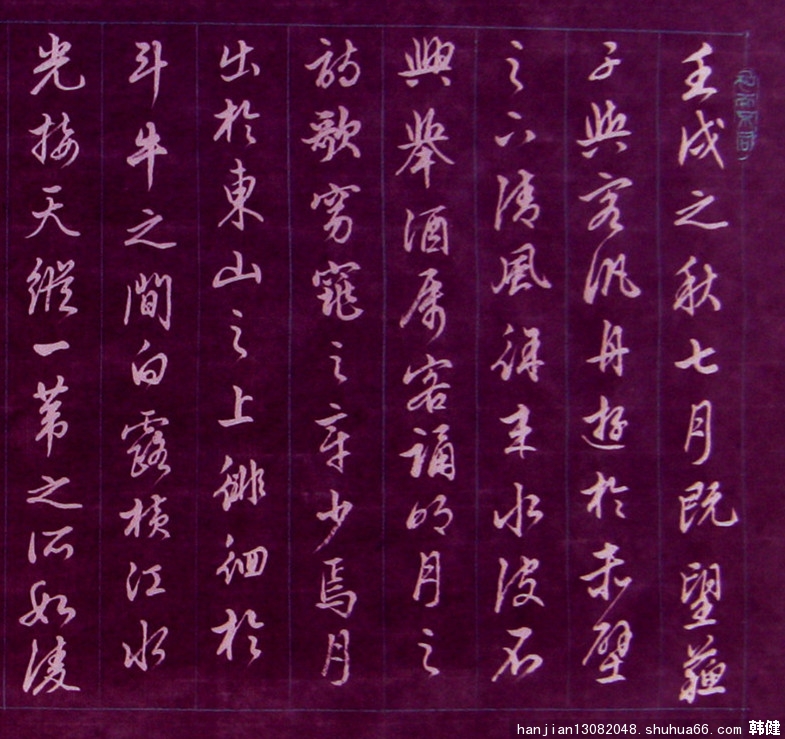 和而不同
壬戌之秋七月既望蘇
子與客汎舟遊於赤壁
之下清風徐来水波不
興舉酒属客誦明月之
詩歌窈窕之章少焉月
出於東山之上徘徊於
斗牛之間白露横江水
光接天縱一葦之所如凌
hanjian13082048.shuhua66.com 韩健